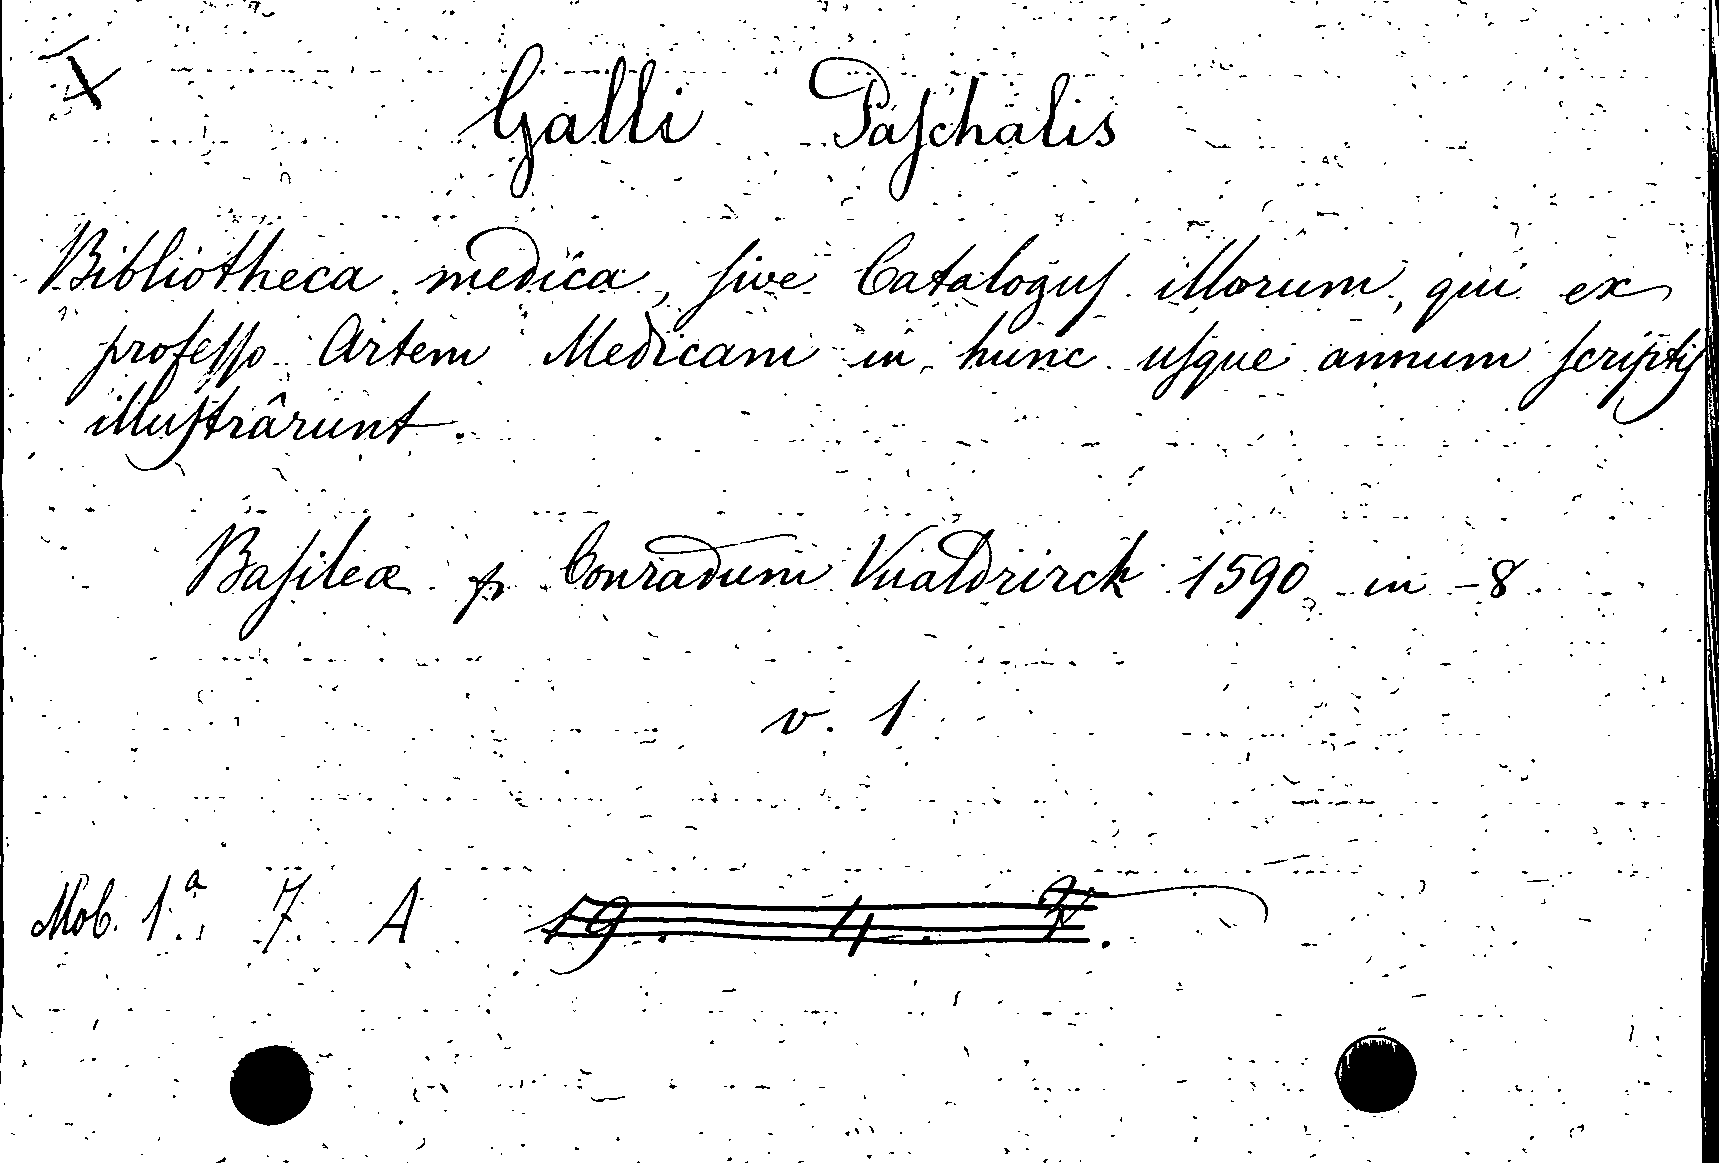 Galli Paſchalis
Bibliotheca medica, ſive Cataloguſ illorum, qui ex
profeſſo Artem Medicam in hunc uſque annum ſcriptiſ
illuſtrârunt.
Baſileæ p Conradum Vualdrirck 1590 in -8
v. 1
Mob. 1.ª 7. A 19. 4.